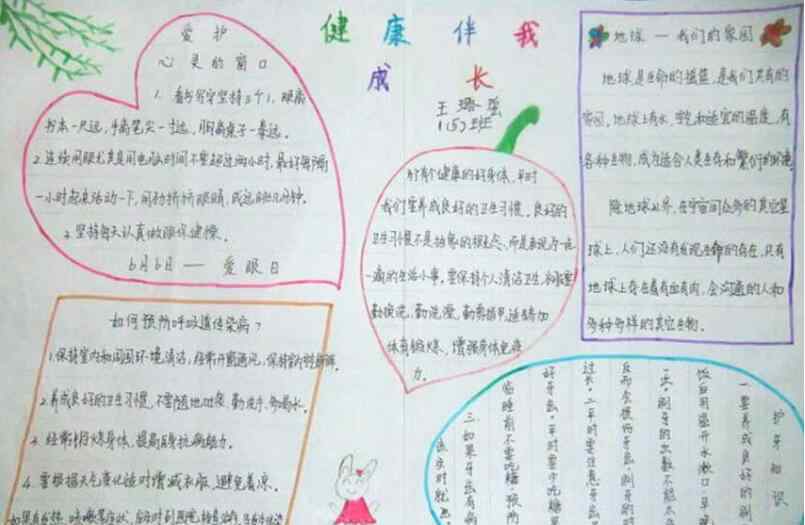 健康伴我
成长
王
1(5)班
爱护
心灵的窗口
1. 看书写字坚持三个1,眼离
书本一尺远,手离笔尖一寸远,胸离桌子一拳远。
2.连续用眼尤其是用电脑时间不要超过两小时,最好每隔
一小时起来活动一下,闭动挤挤眼睛,或远望几分钟。
3.坚持每天认真做眼保健操。
6月6日——爱眼日
地球—我们的家园
地球是生命的摇篮,是我们共有的
家园。地球上有水、空气和适宜的温度,有
各种生物,成为适合人类生存和繁衍的环境。
除地球以外,在宇宙间众多的其它星
球上,人们还没有发现生命的存在,只有
地球上存在着有血有肉、会沟通的人和
多种多样的其它生物。
所有个健康的好身体,平时
我们要养成良好的卫生习惯。良好的
卫生习惯不是抽象的概念,而是表现为一点
一滴的生活小事,要保持个人清洁卫生,
勤换洗,勤洗澡,勤剪指甲,适时参加
体育锻炼,增强身体免疫
力。
如何预防呼吸道传染病?
1.保持室内和周围环境清洁,经常开窗通风,保持室内空气新鲜。
2.养成良好的卫生习惯,不要随地吐痰,勤洗手、多喝水。
3.经常锻炼身体,提高自身抗病能力。
4.要根据天气变化适时增减衣服,避免着凉。
护牙知识
一要养成良好的刷
饭后用温开水漱口,早
一次,刷牙的次数不能太
反而会损伤牙齿,刷牙的时
过长。二平时要注意牙齿
好牙齿,平时要少吃糖果
临睡前不要吃糖,预防
三、如果牙齿有病